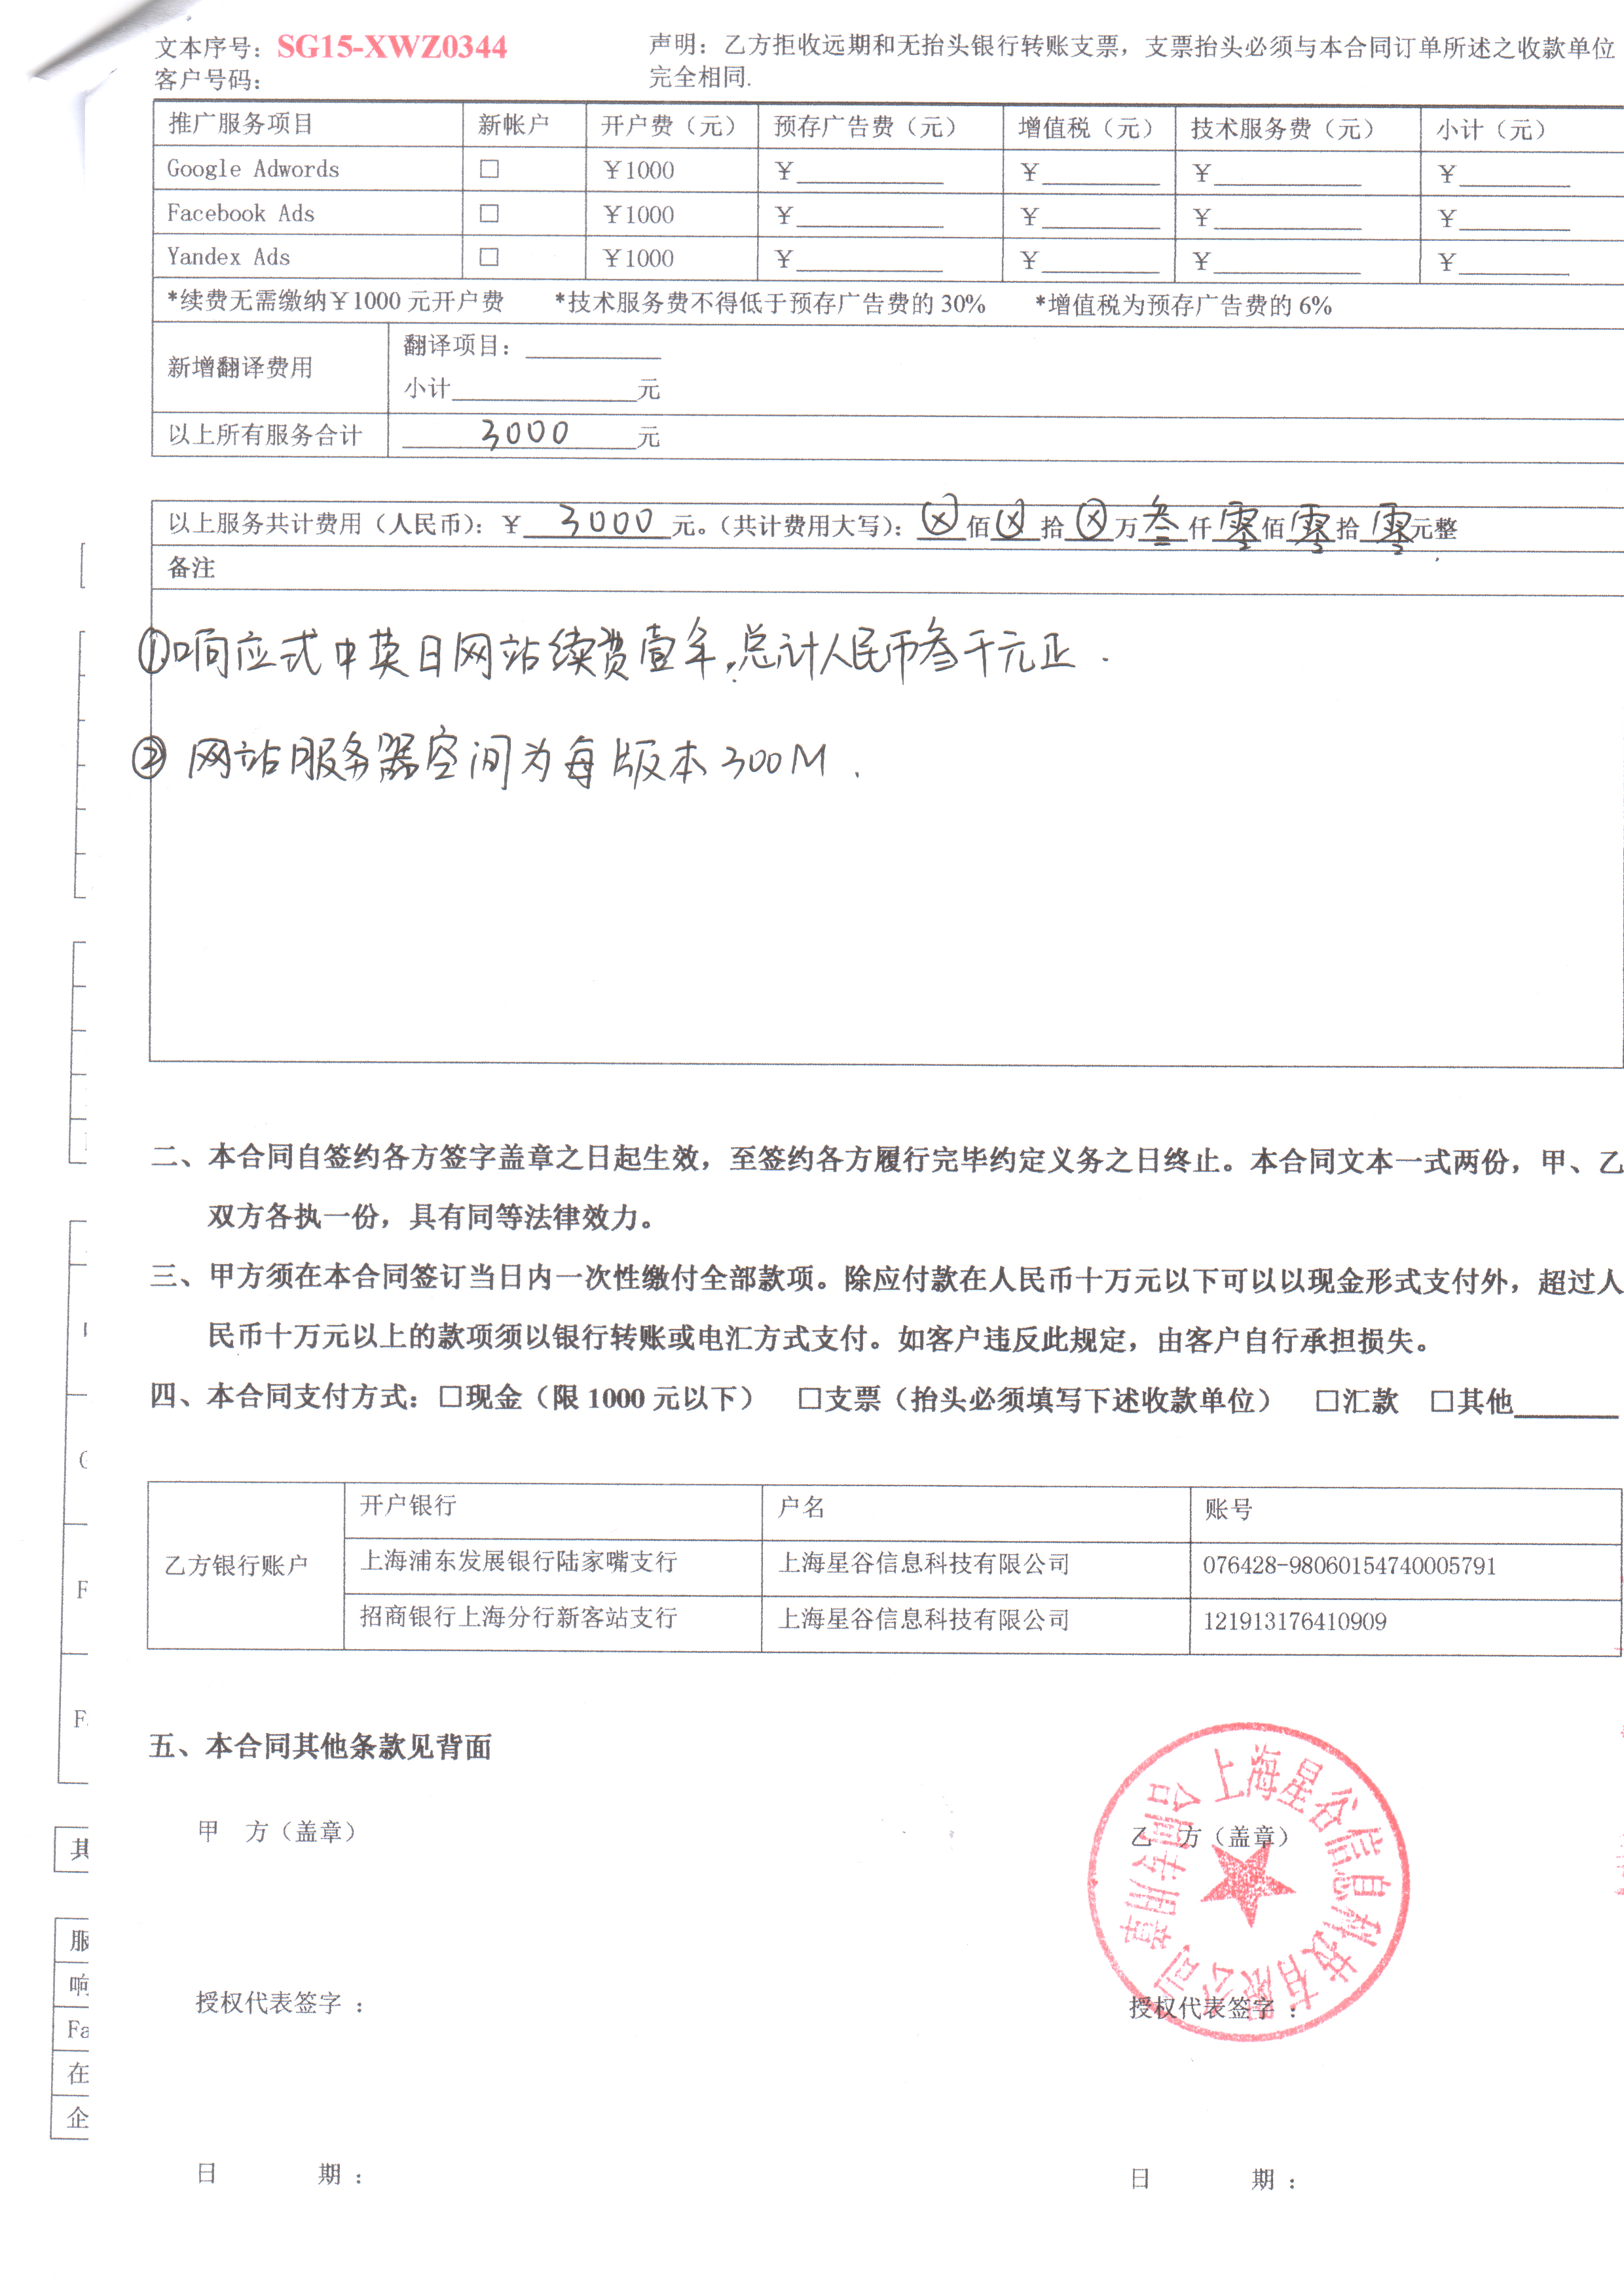 文本序号：SG15-XWZ0344
客户号码：
声明：乙方拒收远期和无抬头银行转账支票，支票抬头必须与本合同订单所述之收款单位
完全相同.
推广服务项目 新帐户 开户费（元） 预存广告费（元） 增值税（元） 技术服务费（元） 小计（元）
Google Adwords □ ￥1000 ￥ ￥ ￥ ￥
Facebook Ads □ ￥1000 ￥ ￥ ￥ ￥
Yandex Ads □ ￥1000 ￥ ￥ ￥ ￥
*续费无需缴纳￥1000 元开户费 *技术服务费不得低于预存广告费的 30% *增值税为预存广告费的 6%
新增翻译费用
翻译项目：
小计 元
以上所有服务合计 3000 元
以上服务共计费用（人民币）：￥ 3000 元。（共计费用大写）：ⓧ佰ⓧ拾ⓧ万叁仟零佰零拾零元整
备注
①响应式中英日网站续费壹年,总计人民币叁千元正.
②网站服务器空间为每版本300M.
二、本合同自签约各方签字盖章之日起生效，至签约各方履行完毕约定义务之日终止。本合同文本一式两份，甲、乙
双方各执一份，具有同等法律效力。
三、甲方须在本合同签订当日内一次性缴付全部款项。除应付款在人民币十万元以下可以以现金形式支付外，超过人
民币十万元以上的款项须以银行转账或电汇方式支付。如客户违反此规定，由客户自行承担损失。
四、本合同支付方式：□现金（限 1000 元以下） □支票（抬头必须填写下述收款单位） □汇款 □其他
乙方银行账户
开户银行 户名 账号
上海浦东发展银行陆家嘴支行 上海星谷信息科技有限公司 076428-98060154740005791
招商银行上海分行新客站支行 上海星谷信息科技有限公司 121913176410909
五、本合同其他条款见背面
甲 方（盖章） 乙 方（盖章）
上海星谷信息科技有限公司
合同专用章
授权代表签字 ： 授权代表签字 ：
日 期 ： 日 期 ：
其
服
响
Fa
在
企